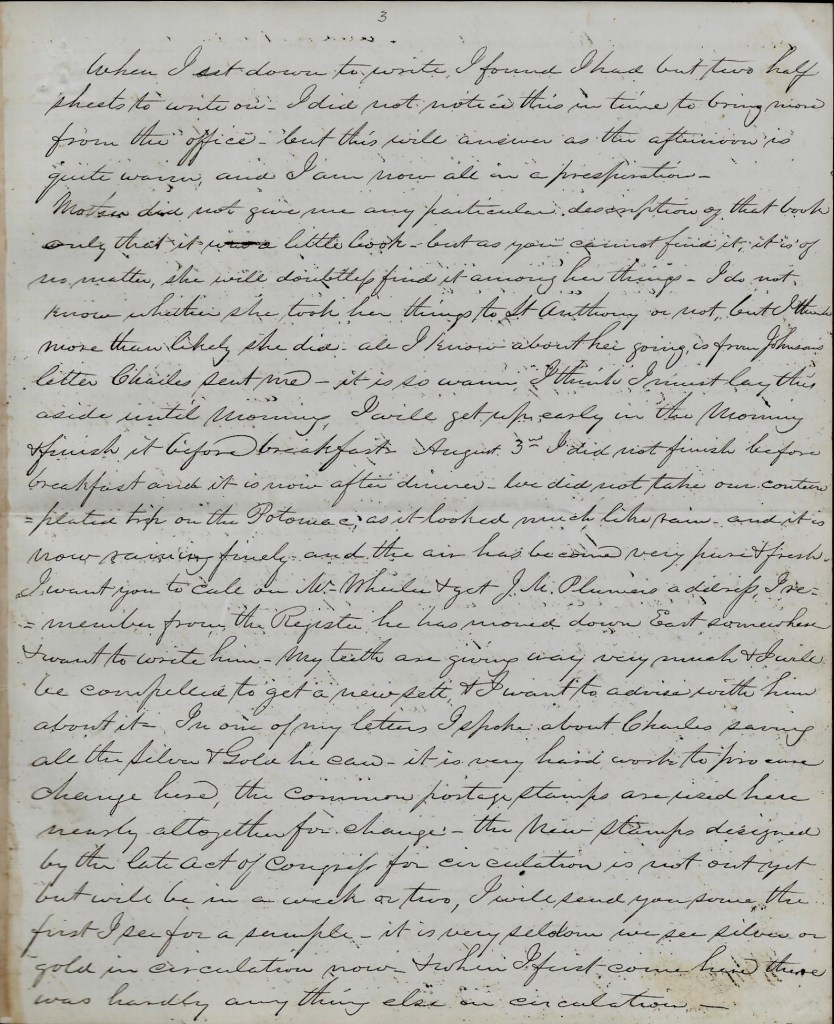 3
When I set down to write, I found I had but two half
sheets to write on - I did not notice this in time to bring more
from the office - but this will answer as the afternoon is
quite warm, and I am now all in a prespiration -
Mother did not give me any particular description of that book
only that it was a little book - but as you cannot find it, it is of
no matter, she will doubtless find it among her things - I do not
know whether she took her things to St Anthony or not, but I think
more than likely she did. all I know about her going, is from Johnsons
letter Charles sent me - it is so warm, I think I must lay this
aside until Morning, I will get up early in the Morning
& finish it before breakfast August 3rd I did not finish before
breakfast and it is now after dinner - We did not take our contem
=plated trip on the Potomac, as it looked much like rain - and it is
now raining finely and the air has become very pure & fresh -
I want you to call on Mr Wheeler & get J. M. Plumers address, I re=
=member from the Register he has moved down East somewhere
& want to write him - My teeth are giving way very much & I will
be compelled to get a new sett, & I want to advise with him
about it - In one of my letters I spoke about Charles saving
all the Silver & Gold he can - it is very hard work to procure
change here, the common postage stamps are used here
nearly altogether for change - the New Stamps designed
by the late Act of Congress for circulation is not out yet
but will be in a week or two, I will send you some the
first I see for a sample - it is very seldom we see silver or
gold in circulation now & when I first come here there
was hardly any thing else in circulation -